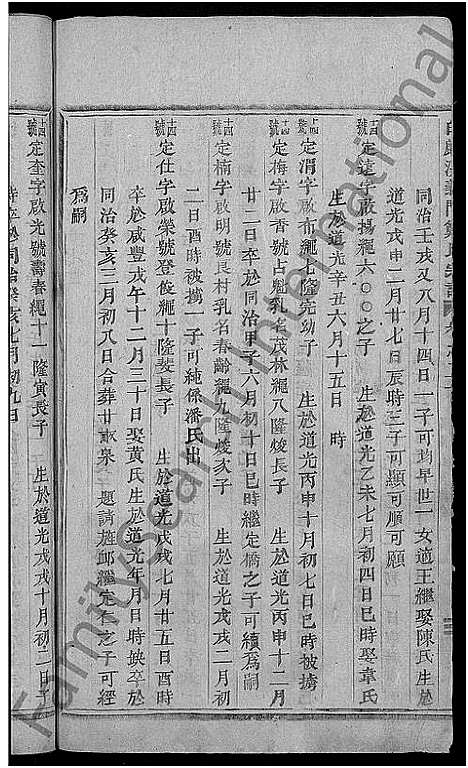 同治壬戌又八月十四日一子可均早世一女適王繼娶陳氏生於
道光戊申二月廿七日辰時三子可顯可順可願
十四號 定遠字啟揚繩六〇〇之子 生於道光乙未七月初四日巳時娶韋氏
生於道光辛丑六月十五日 時
十四號 定渭字啟布繩七隆完幼子 生於道光丙申十月初七日巳時被擄
十四號 定梅字啟香號占魁乳名茂林繩八隆焌長子 生於道光丙申十二月
廿二日卒於同治甲子六月初十日巳時繼定橋之子可續爲嗣
十四號 定楠字啟明號良材乳名春齡繩十隆焌次子 生於道光戊戌二月初
二日酉時被擄一子可純係潘氏出
十四號 定仕字啟榮號登俊繩十隆斐長子 生於道光戊戌七月廿五日酉時
卒於咸豐戊午十二月三十日娶黃氏生於道光年月日時歿卒於
同治癸亥三月初八日合葬廿畝泉 題請旌卹繼定 之子可經
爲嗣
十四號 定奎字啟光號壽春繩十一隆寅長子 生於道光戊戌十月初二日子
時卒於同治癸亥七月初九日
FamilySearch International